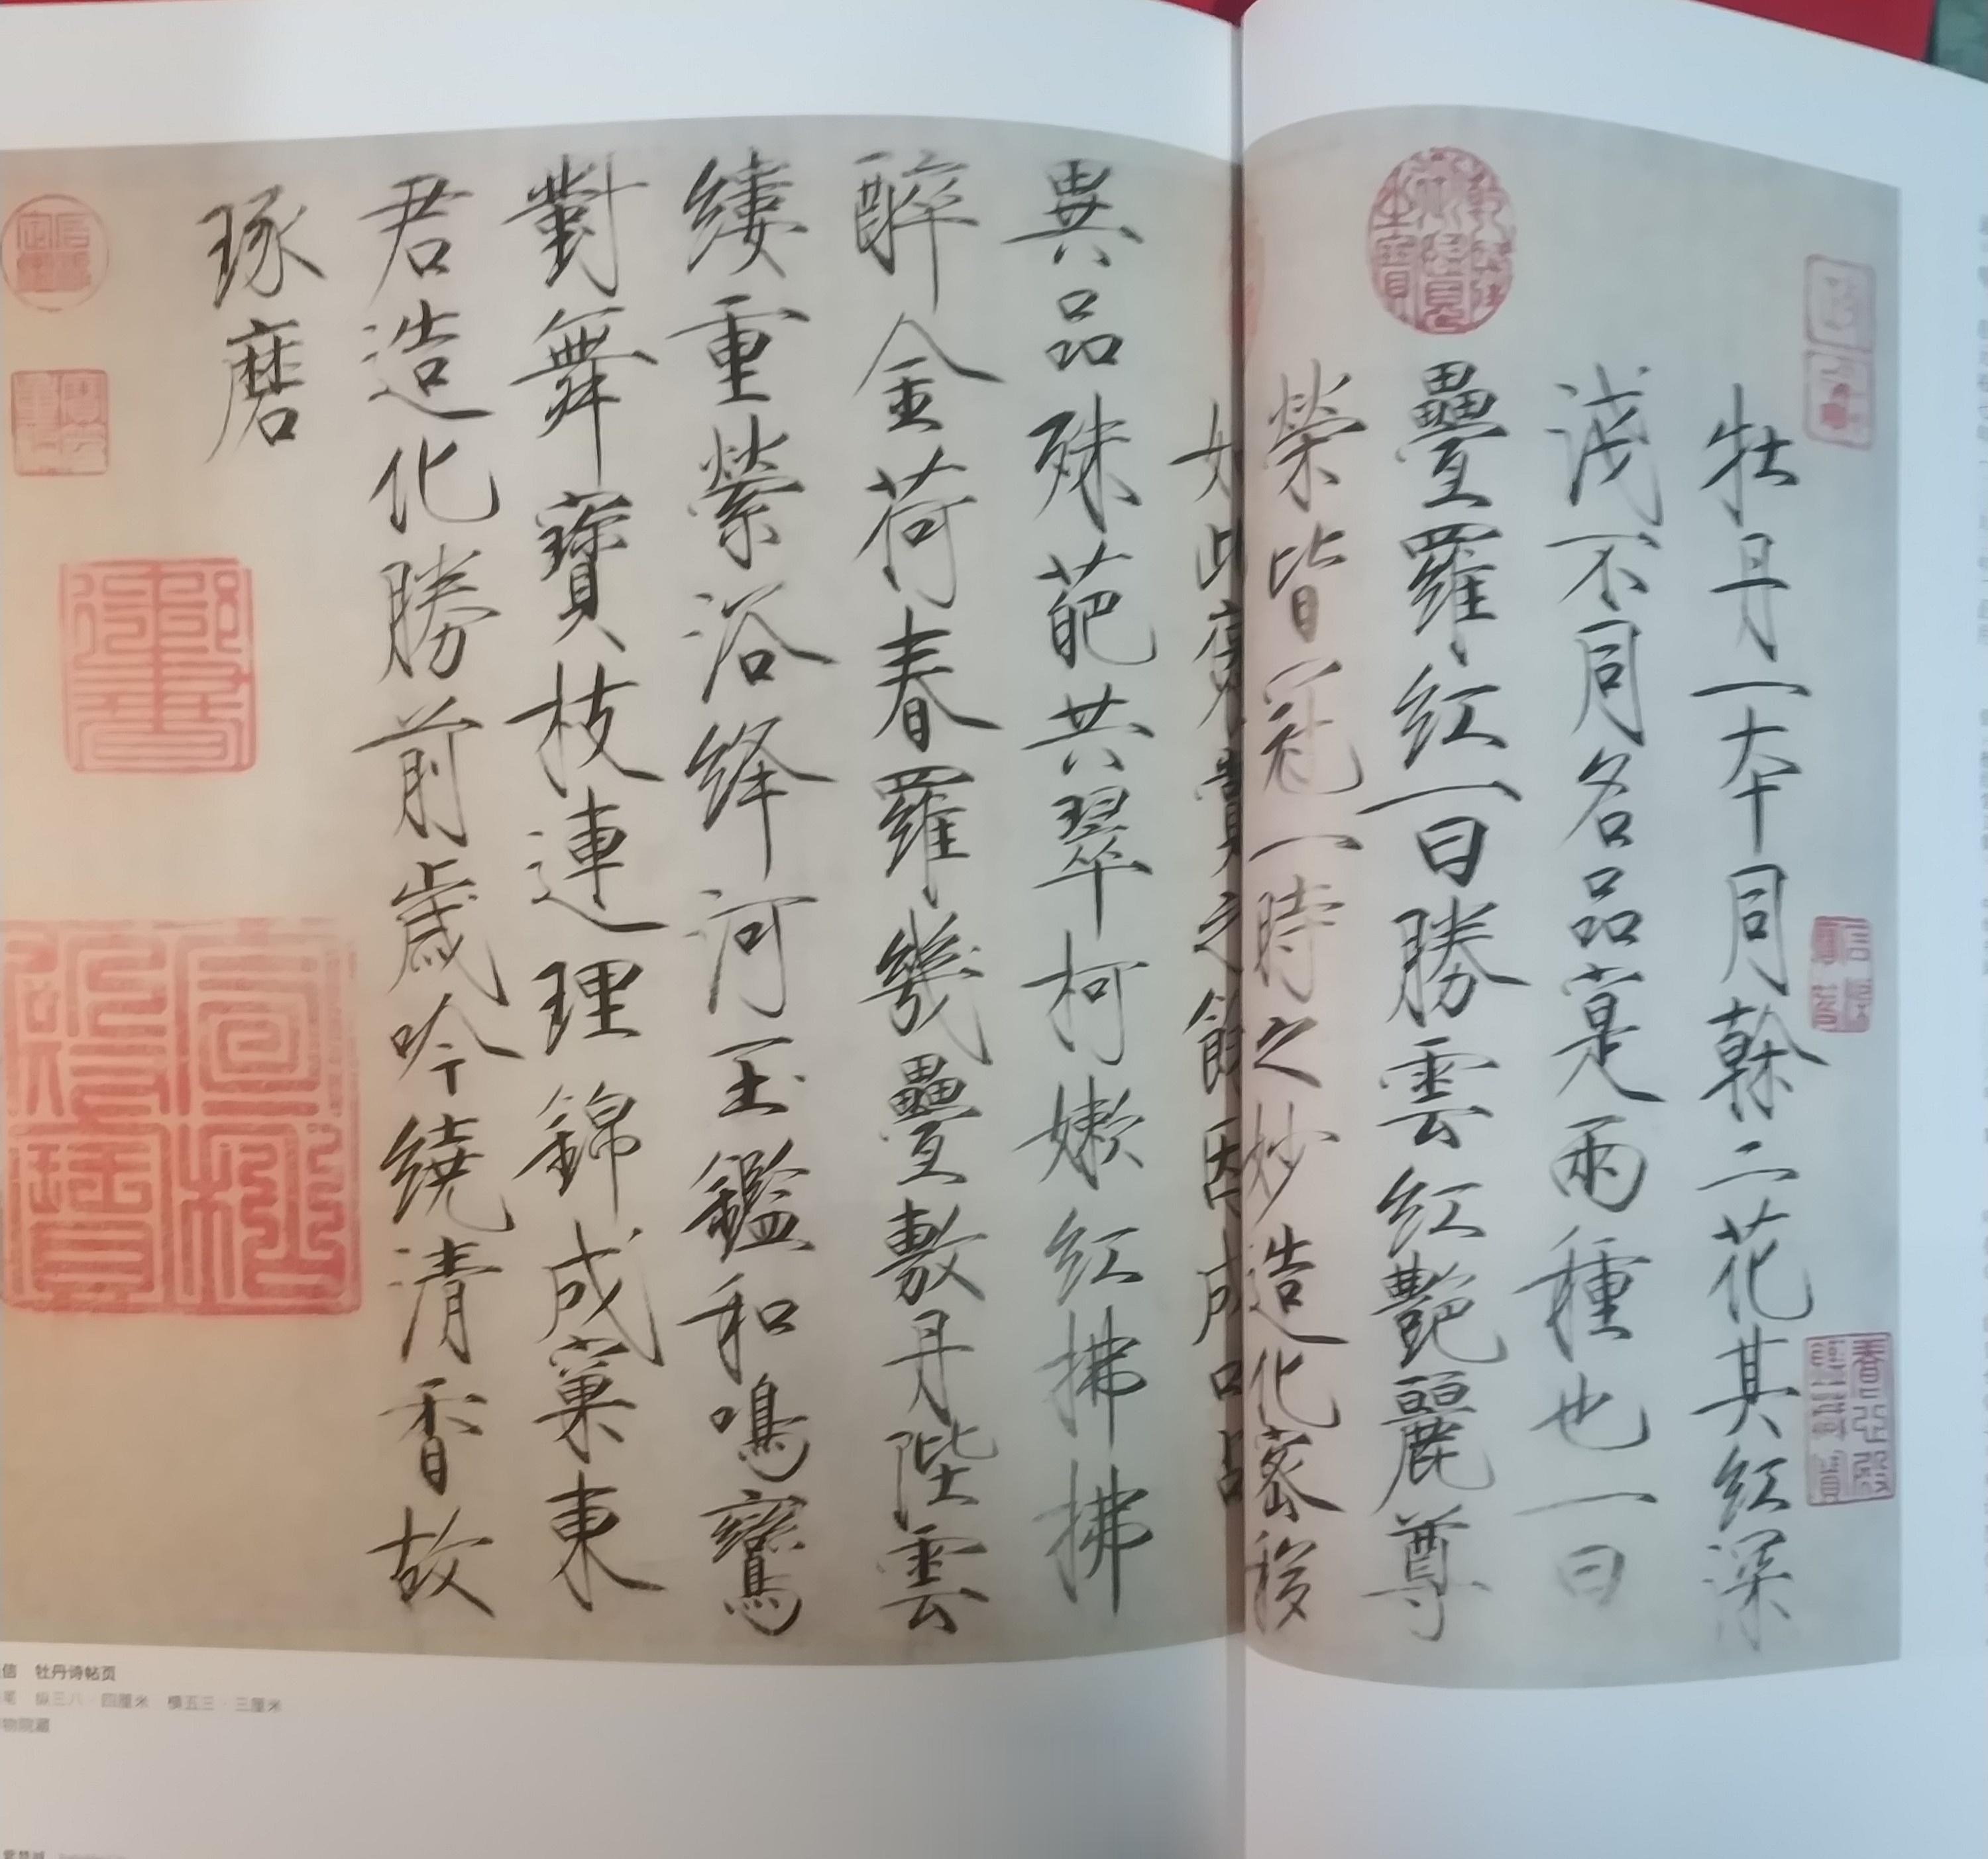 牡丹一本同榦二花其紅深
淺不同名品寔兩種也一曰
疊羅紅一曰勝雲紅艷麗尊
榮皆冠一時之妙造化密移
如此褒賞之餘因成口占
異品殊葩共翠柯嫩紅拂拂
醉金荷春羅幾疊敷丹陛雲
縷重縈浴絳河玉鑑和鳴鸞
對舞寶枝連理錦成窠東
君造化勝前歲吟繞清香故
琢磨
乾隆御覽之寶
宣統御覽之寶
信 牡丹诗帖页
笔 纵三八·四厘米 横五三·三厘米
物院藏